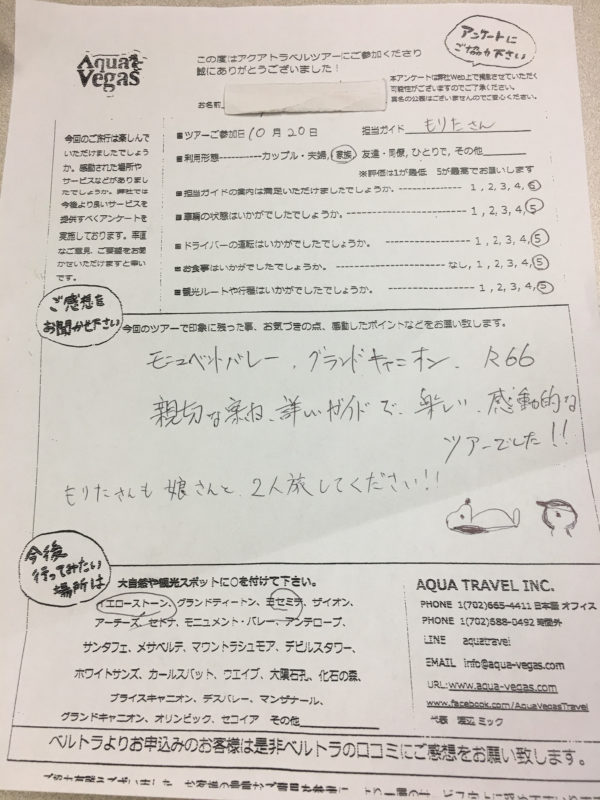 Aqua Vegas
この度はアクアトラベルツアーにご参加くださり
誠にありがとうございました！
アンケートに
ご協力下さい
本アンケートは弊社Web上で掲載させていただく
可能性がございますのでご了承ください。
実名の公表はございませんのでご安心ください。
お名前
今回のご旅行は楽しんで
いただけましたでしょう
か。感動された場所や
サービスなどがありまし
たでしょうか。弊社では
今後より良いサービスを
提供すべくアンケートを
実施しております。率直
なご意見、ご要望をお聞
かせいただけますと幸い
です。
■ツアーご参加日 10 月 20 日 担当ガイド もりたさん
■利用形態-----------カップル・夫婦, 家族, 友達・同僚, ひとりで, その他
※評価は1が最低 5が最高でお願いします
■担当ガイドの案内は満足いただけましたでしょうか。 ---------------- 1 , 2, 3, 4, 5
■車輛の状態はいかがでしたでしょうか。 ---------------- 1 , 2, 3, 4, 5
■ドライバーの運転はいかがでしたでしょうか。 ---------------- 1 , 2, 3, 4, 5
■お食事はいかがでしたでしょうか。 ---------------- なし, 1 , 2, 3, 4, 5
■観光ルートや行程はいかがでしたでしょうか。 ---------------- 1 , 2, 3, 4, 5
ご感想を
お聞かせ下さい
今回のツアーで印象に残った事、お気づきの点、感動したポイントなどをお願い致します。
モニュベントバレー、グランドキャニオン、R66
親切な案内、詳しいガイドで、楽しい、感動的な
ツアーでした!!
もりたさんも 娘さんと、2人旅してください!!
今後
行ってみたい
場所は
大自然や観光スポットに○を付けて下さい。
イエローストーン, グランドティートン, ヨセミテ, ザイオン,
アーチーズ, セドナ, モニュメント・バレー, アンテロープ,
サンタフェ, メサベルデ, マウントラシュモア, デビルスタワー,
ホワイトサンズ, カールスバット, ウエイブ, 大隕石孔, 化石の森,
ブライスキャニオン, デスバレー, マンザナール,
グランドキャニオン, オリンピック, セコイア その他
AQUA TRAVEL INC.
PHONE 1(702)665-4411 日本語 オフィス
PHONE 1(702)588-0492 時間外
LINE aquatravel
EMAIL info@aqua-vegas.com
URL: www.aqua-vegas.com
www.facebook.com/AquaVegasTravel
代表 渡辺 ミック
ベルトラよりお申込みのお客様は是非ベルトラの口コミにご感想をお願い致します。